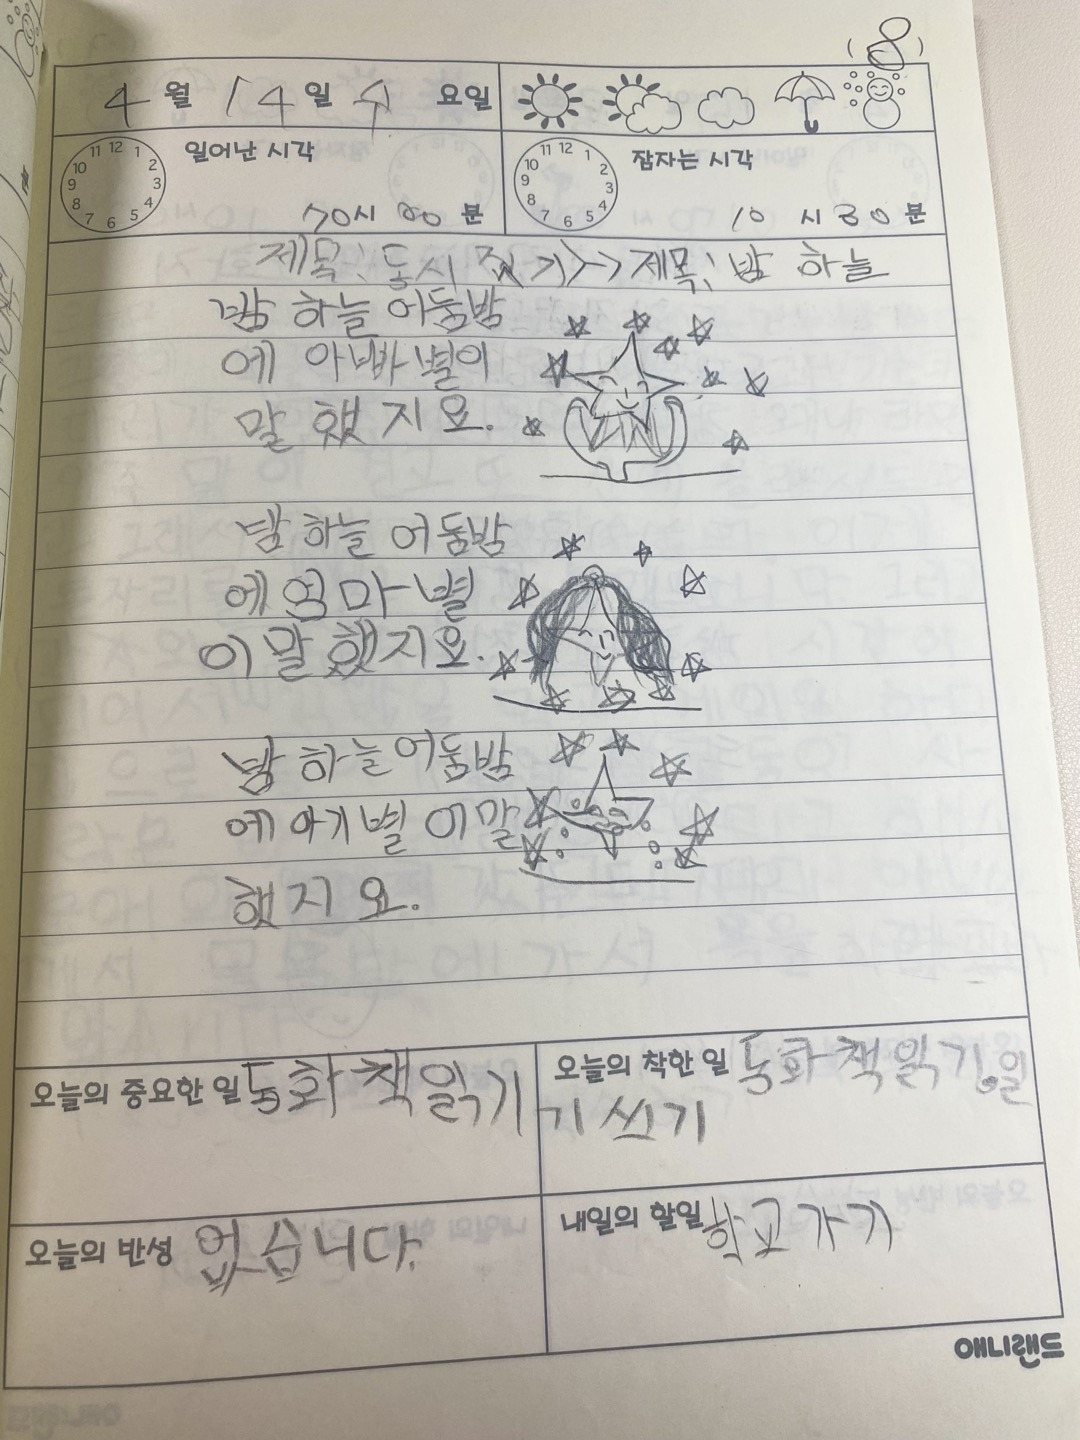 4월 14일 수 요일
일어난 시각
12 1 2 3 4 5 6 7 8 9 10 11
10시 00 분
잠자는 시각
12 1 2 3 4 5 6 7 8 9 10 11
10 시 30 분
제목: 동시 짓기>→제목: 밤 하늘
밤 하늘 어둠밤
에 아빠별이
말 했 지 요.
밤 하늘 어둠밤
에 엄마 별
이 말 했지요.
밤 하늘 어둠밤
에 아기 별 이 말
했지 요.
오늘의 중요한 일 동화 책 읽기
오늘의 착한 일 동화 책 읽기, 일
기 쓰기
오늘의 반성 없습니다.
내일의 할일 학교 가기
애니랜드